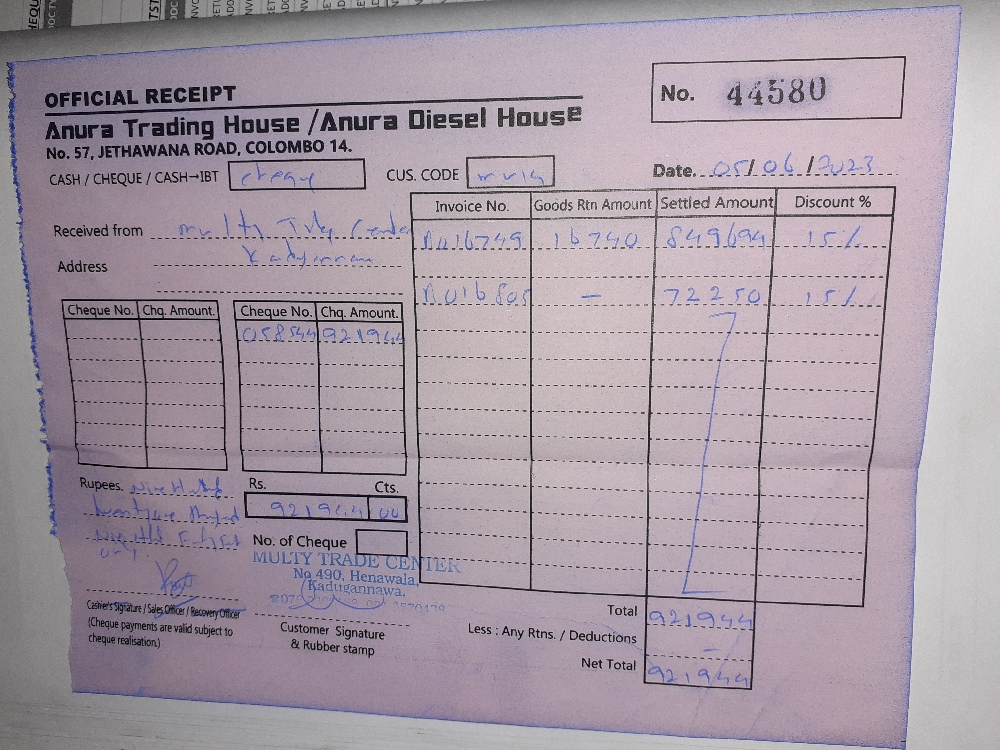 OFFICIAL RECEIPT
No. 44580
Anura Trading House /Anura Diesel House
No. 57, JETHAWANA ROAD, COLOMBO 14.
CASH / CHEQUE / CASH→IBT cheque CUS. CODE Date. 05/06/2023
Invoice No. Goods Rtn Amount Settled Amount Discount %
Received from Center
16740 849694 15%
Address
72250 15%
Cheque No. Chq. Amount. Cheque No. Chq. Amount.
058544 921944
Rupees. Rs. Cts.
921944 00
No. of Cheque
MULTY TRADE CENTER
No 490, Henawala,
Kadugannawa.
Cashier's Signature / Sales Officer / Recovery Officer
(Cheque payments are valid subject to
cheque realisation.)
Customer Signature
& Rubber stamp
Total 921944
Less : Any Rtns. / Deductions –
Net Total 921944